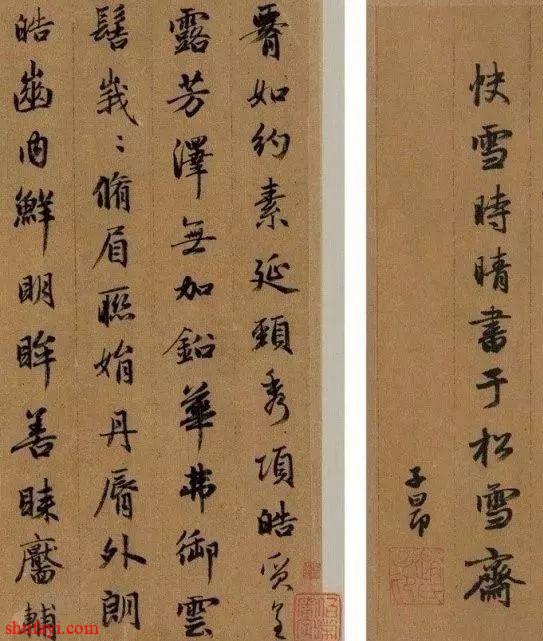 快雪時晴書于松雪齋
子昂
腰如約素延頸秀項皓質呈
露芳澤無加鉛華弗御雲
髻峩〻脩眉聯娟丹脣外朗
皓齒内鮮明眸善睞靨輔
shufayi.com